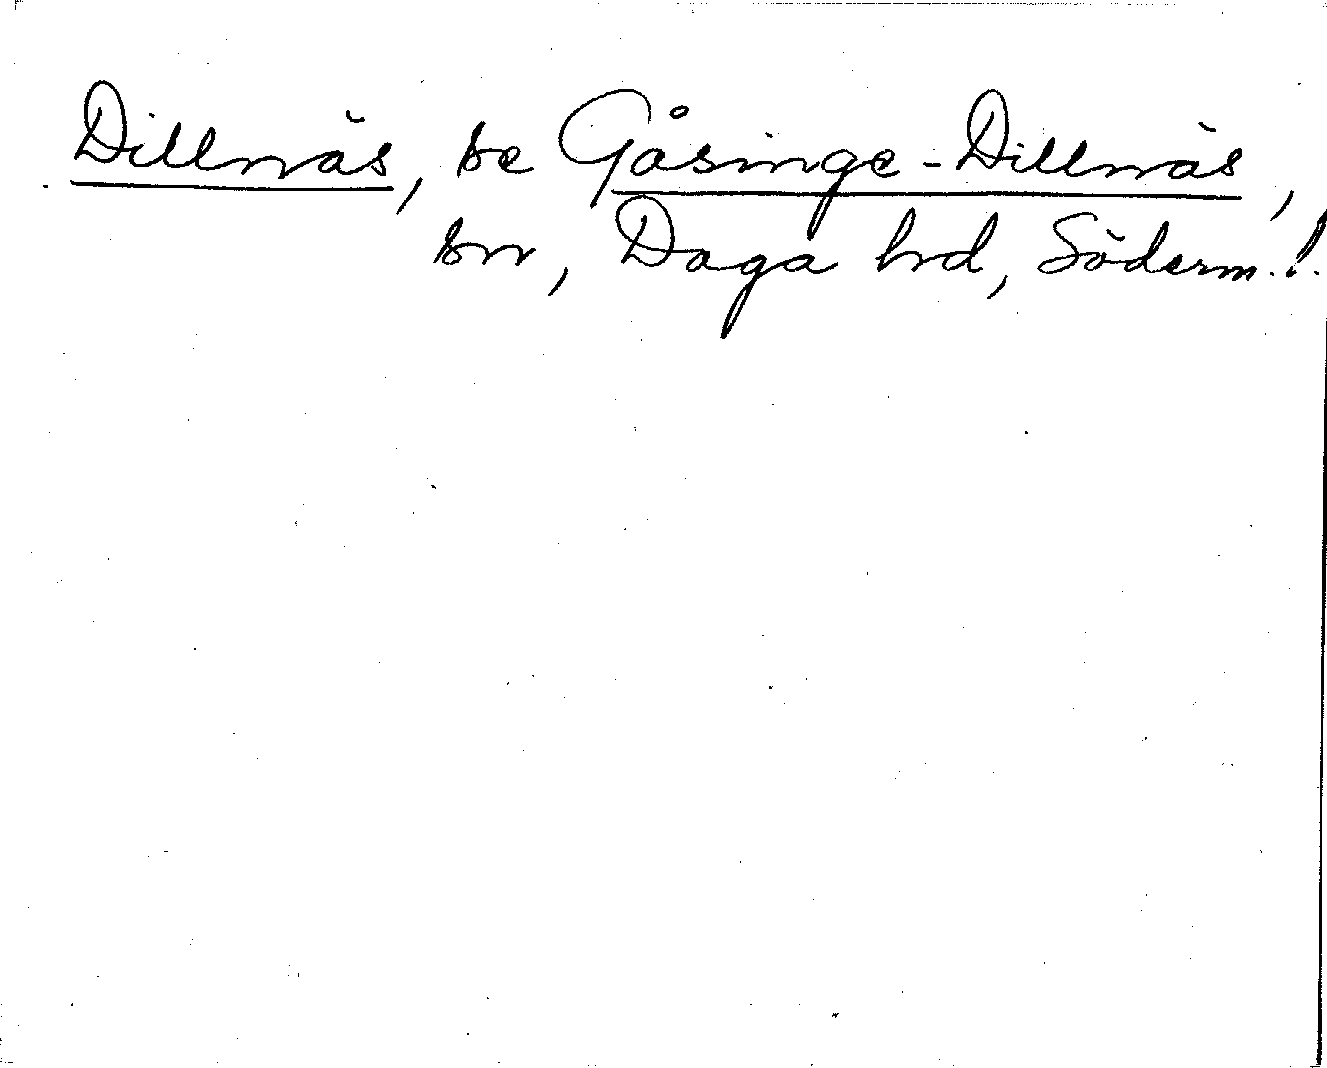 Dillnäs, se Gåsinge-Dillnäs,
sn, Daga hd, Söderm.!